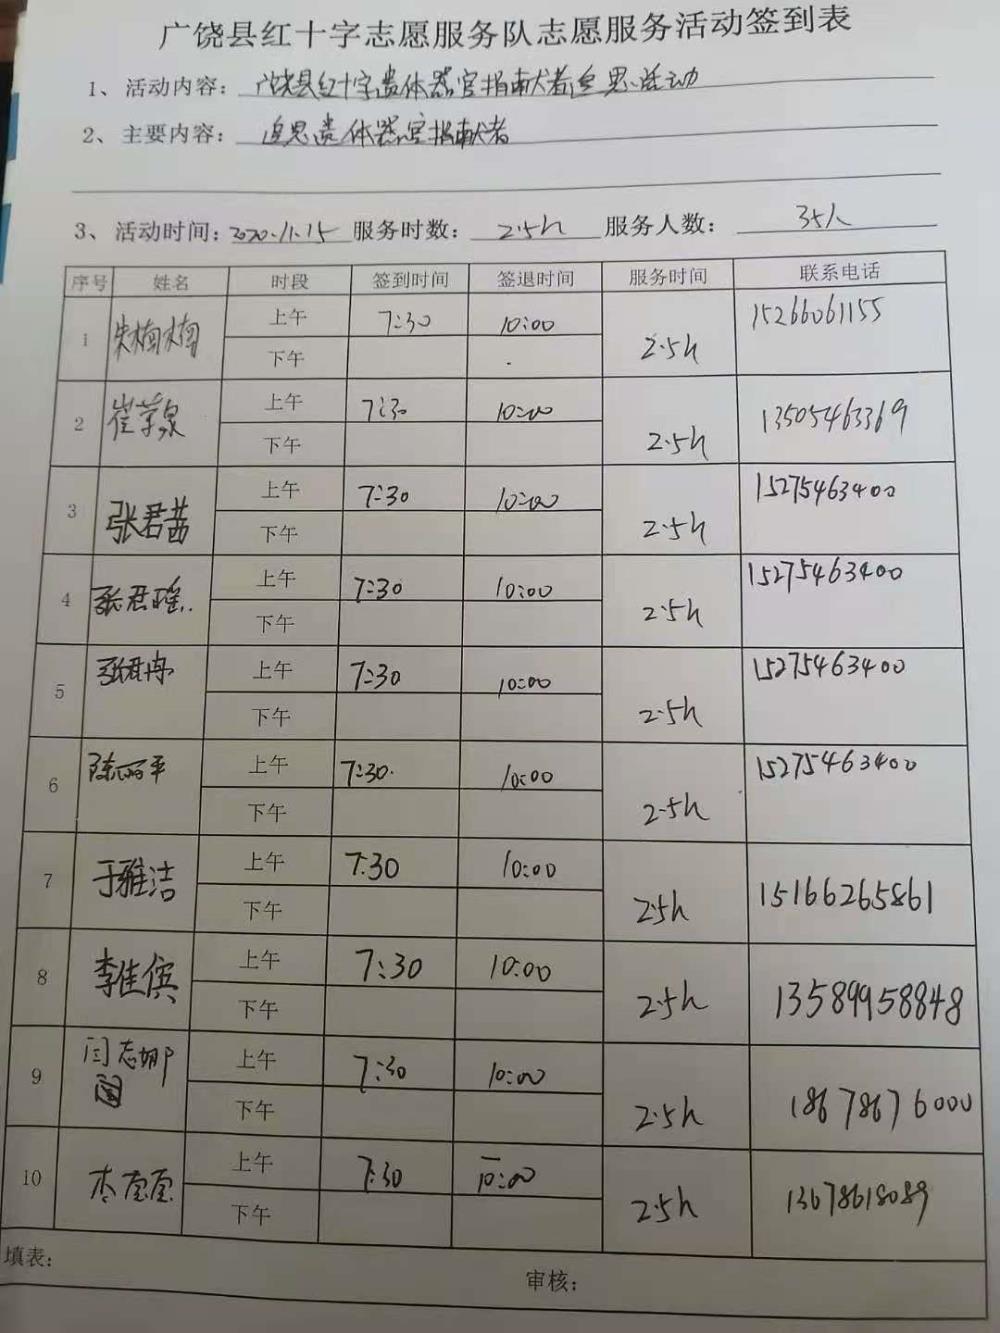 广饶县红十字志愿服务队志愿服务活动签到表
1、活动内容：广饶县红十字遗体器官捐献者追思活动
2、主要内容：追思遗体器官捐献者
3、活动时间：2020.11.15 服务时数：2.5h 服务人数：35人
序号 姓名 时段 签到时间 签退时间 服务时间 联系电话
1 朱梅梅 上午 7:30 10:00 2.5h 15266061155
下午
2 崔 泉 上午 7:30 10:00 2.5h 13505463369
下午
3 张君茜 上午 7:30 10:00 2.5h 15275463400
下午
4 张君瑶 上午 7:30 10:00 2.5h 15275463400
下午
5 张君冉 上午 7:30 10:00 2.5h 15275463400
下午
6 陈丽平 上午 7:30 10:00 2.5h 15275463400
下午
7 于雅洁 上午 7:30 10:00 2.5h 15166265861
下午
8 李佳傧 上午 7:30 10:00 2.5h 13589958848
下午
9 闫志娜 上午 7:30 10:00 2.5h 18678676000
下午
10 李 上午 7:30 10:00 2.5h 13678618089
下午
填表：
审核：